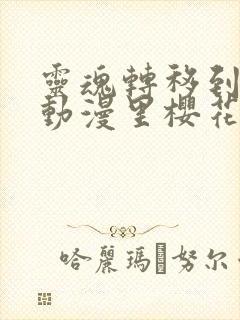 靈魂轉移到
動漫里櫻花
哈麗瑪 努尔